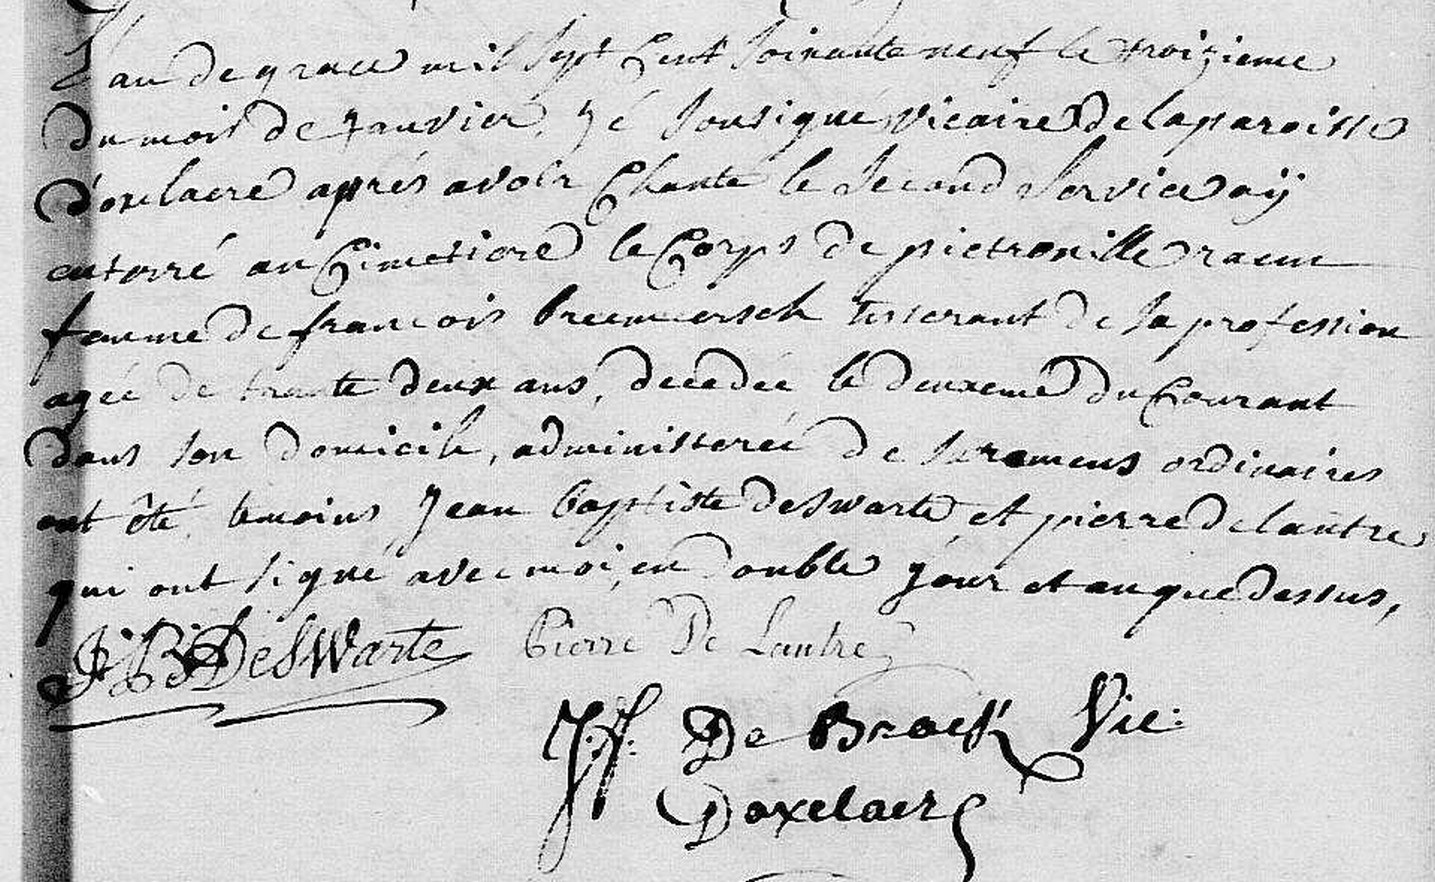 L'an de grace mil sept cent soixante neuf le troizieme
du mois de janvier, je sousigné vicaire de la paroisse
d'oxelaere aprés avoir chanté le second service aÿ
enterré au cimetiere le corps de pietronille racun
femme de francois breemeersch tisserant de sa profession
agée de trante deux ans, decedée le deuxeme du courant
dans son domicile, administerée de sacremens ordinaires
ont été temoins jean baptiste deswarte et pierre delautre
qui ont signé avec moi, en double jour et an que dessus,
J: B: DeSWarte Pierre De Lautre
J: f: De Brock Vic:
Doxelaere